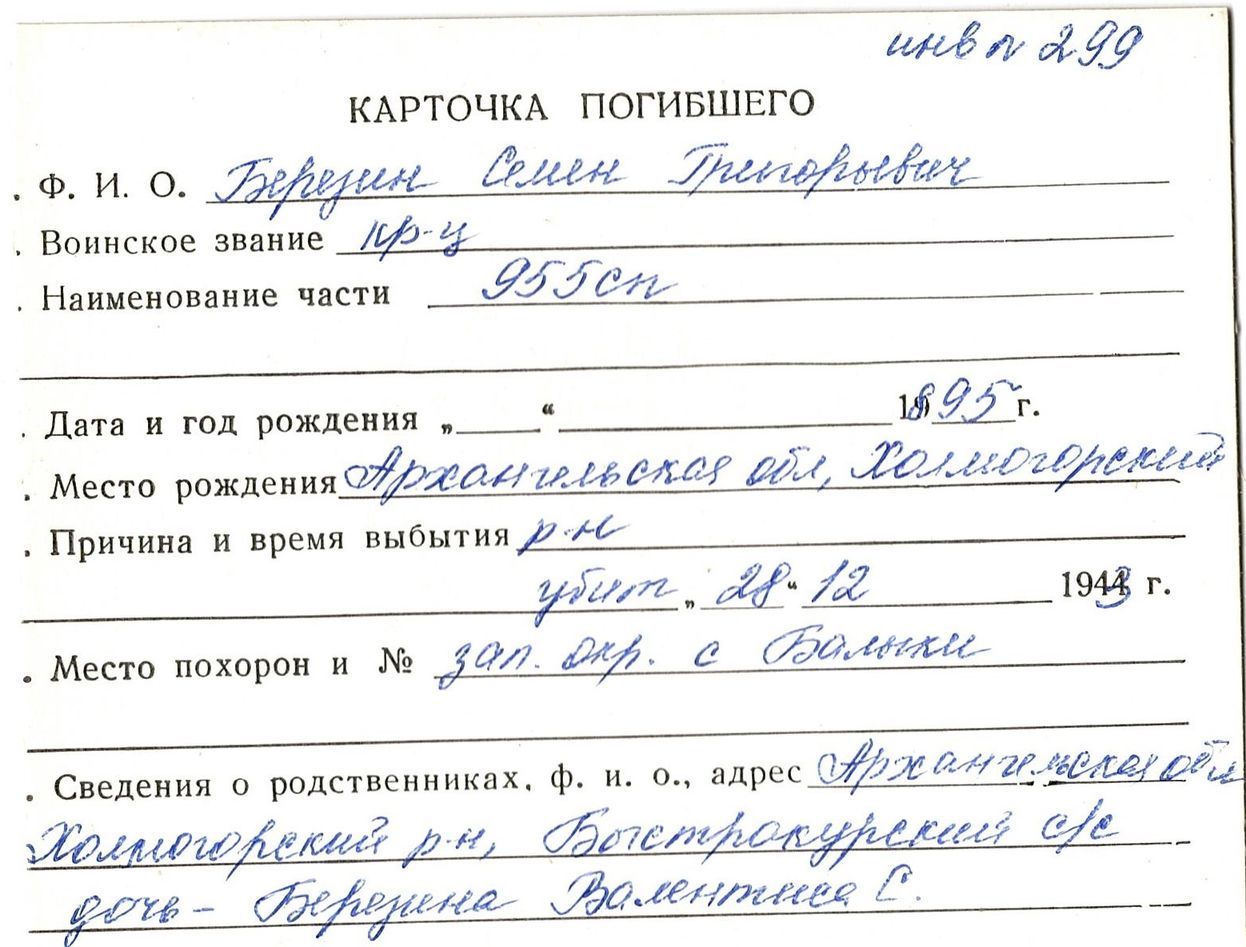 инв № 299
КАРТОЧКА ПОГИБШЕГО
. Ф. И. О. Березин Семен Григорьевич
. Воинское звание кр-ц
. Наименование части 955сп
. Дата и год рождения „ “ 1895 г.
. Место рождения Архангельская обл, Холмогорский
. Причина и время выбытия р-н
убит „ 28 “ 12 1943 г.
. Место похорон и № зап. окр. с Балыки
. Сведения о родственниках, ф. и. о., адрес Архангельская обл
Холмогорский р-н, Быстрокурский с/с
дочь – Березина Валентина С.